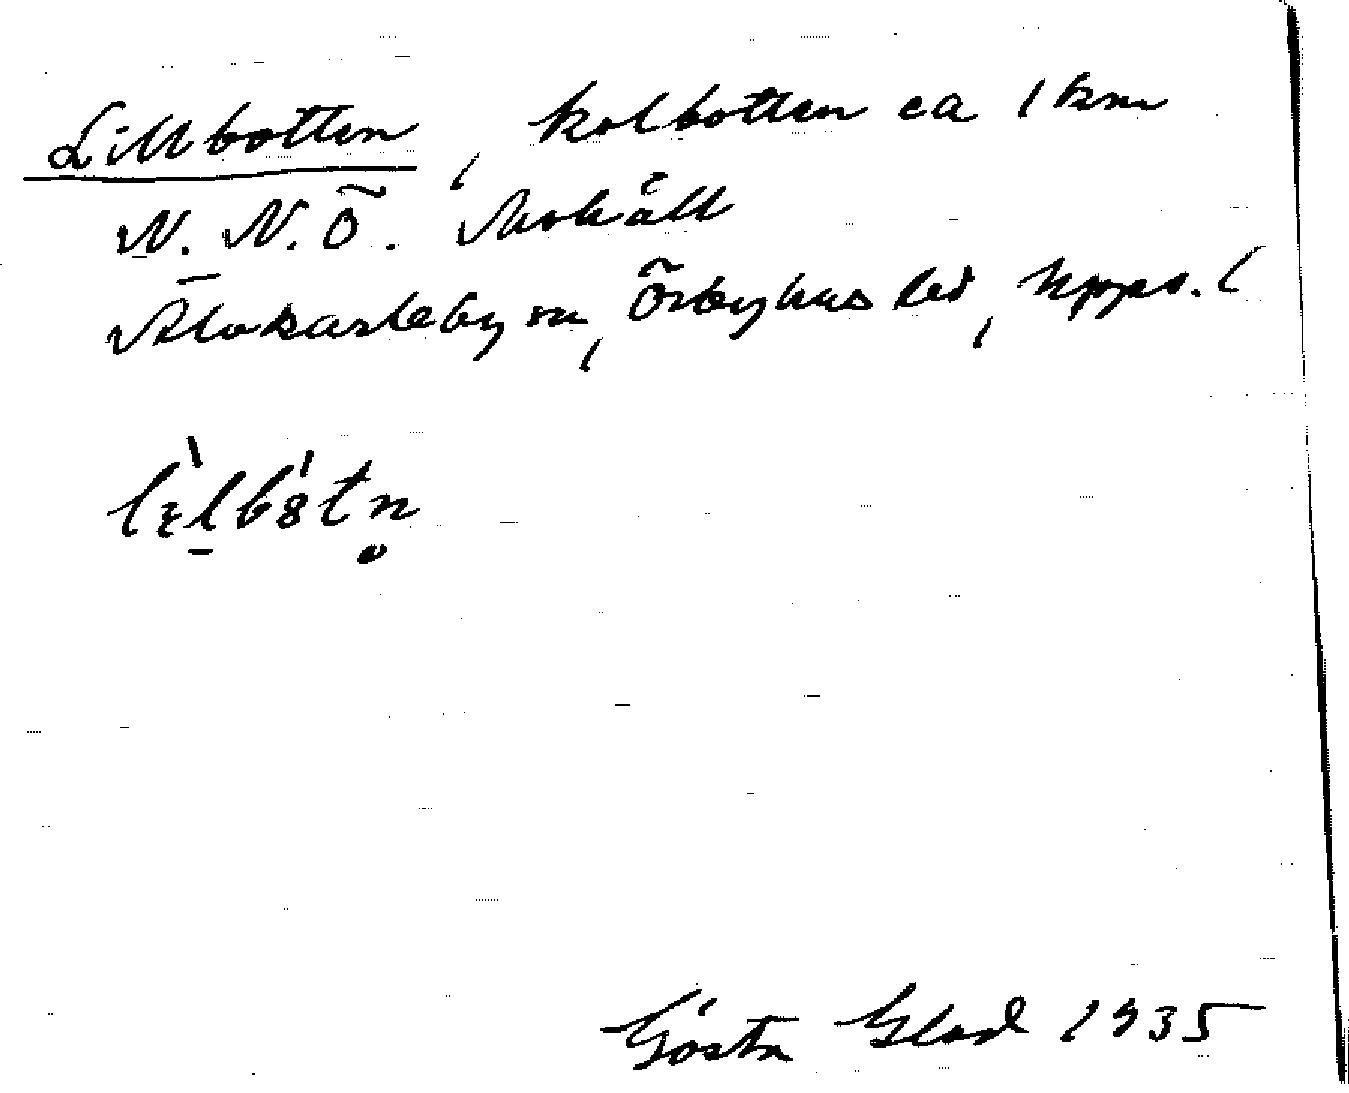 Lillbotten, kolbotten ca 1 km
N.N.Ö. Mohäll
Älvkarleby sn, Örbyhus hd, Upps. l
Gösta Glad 1935